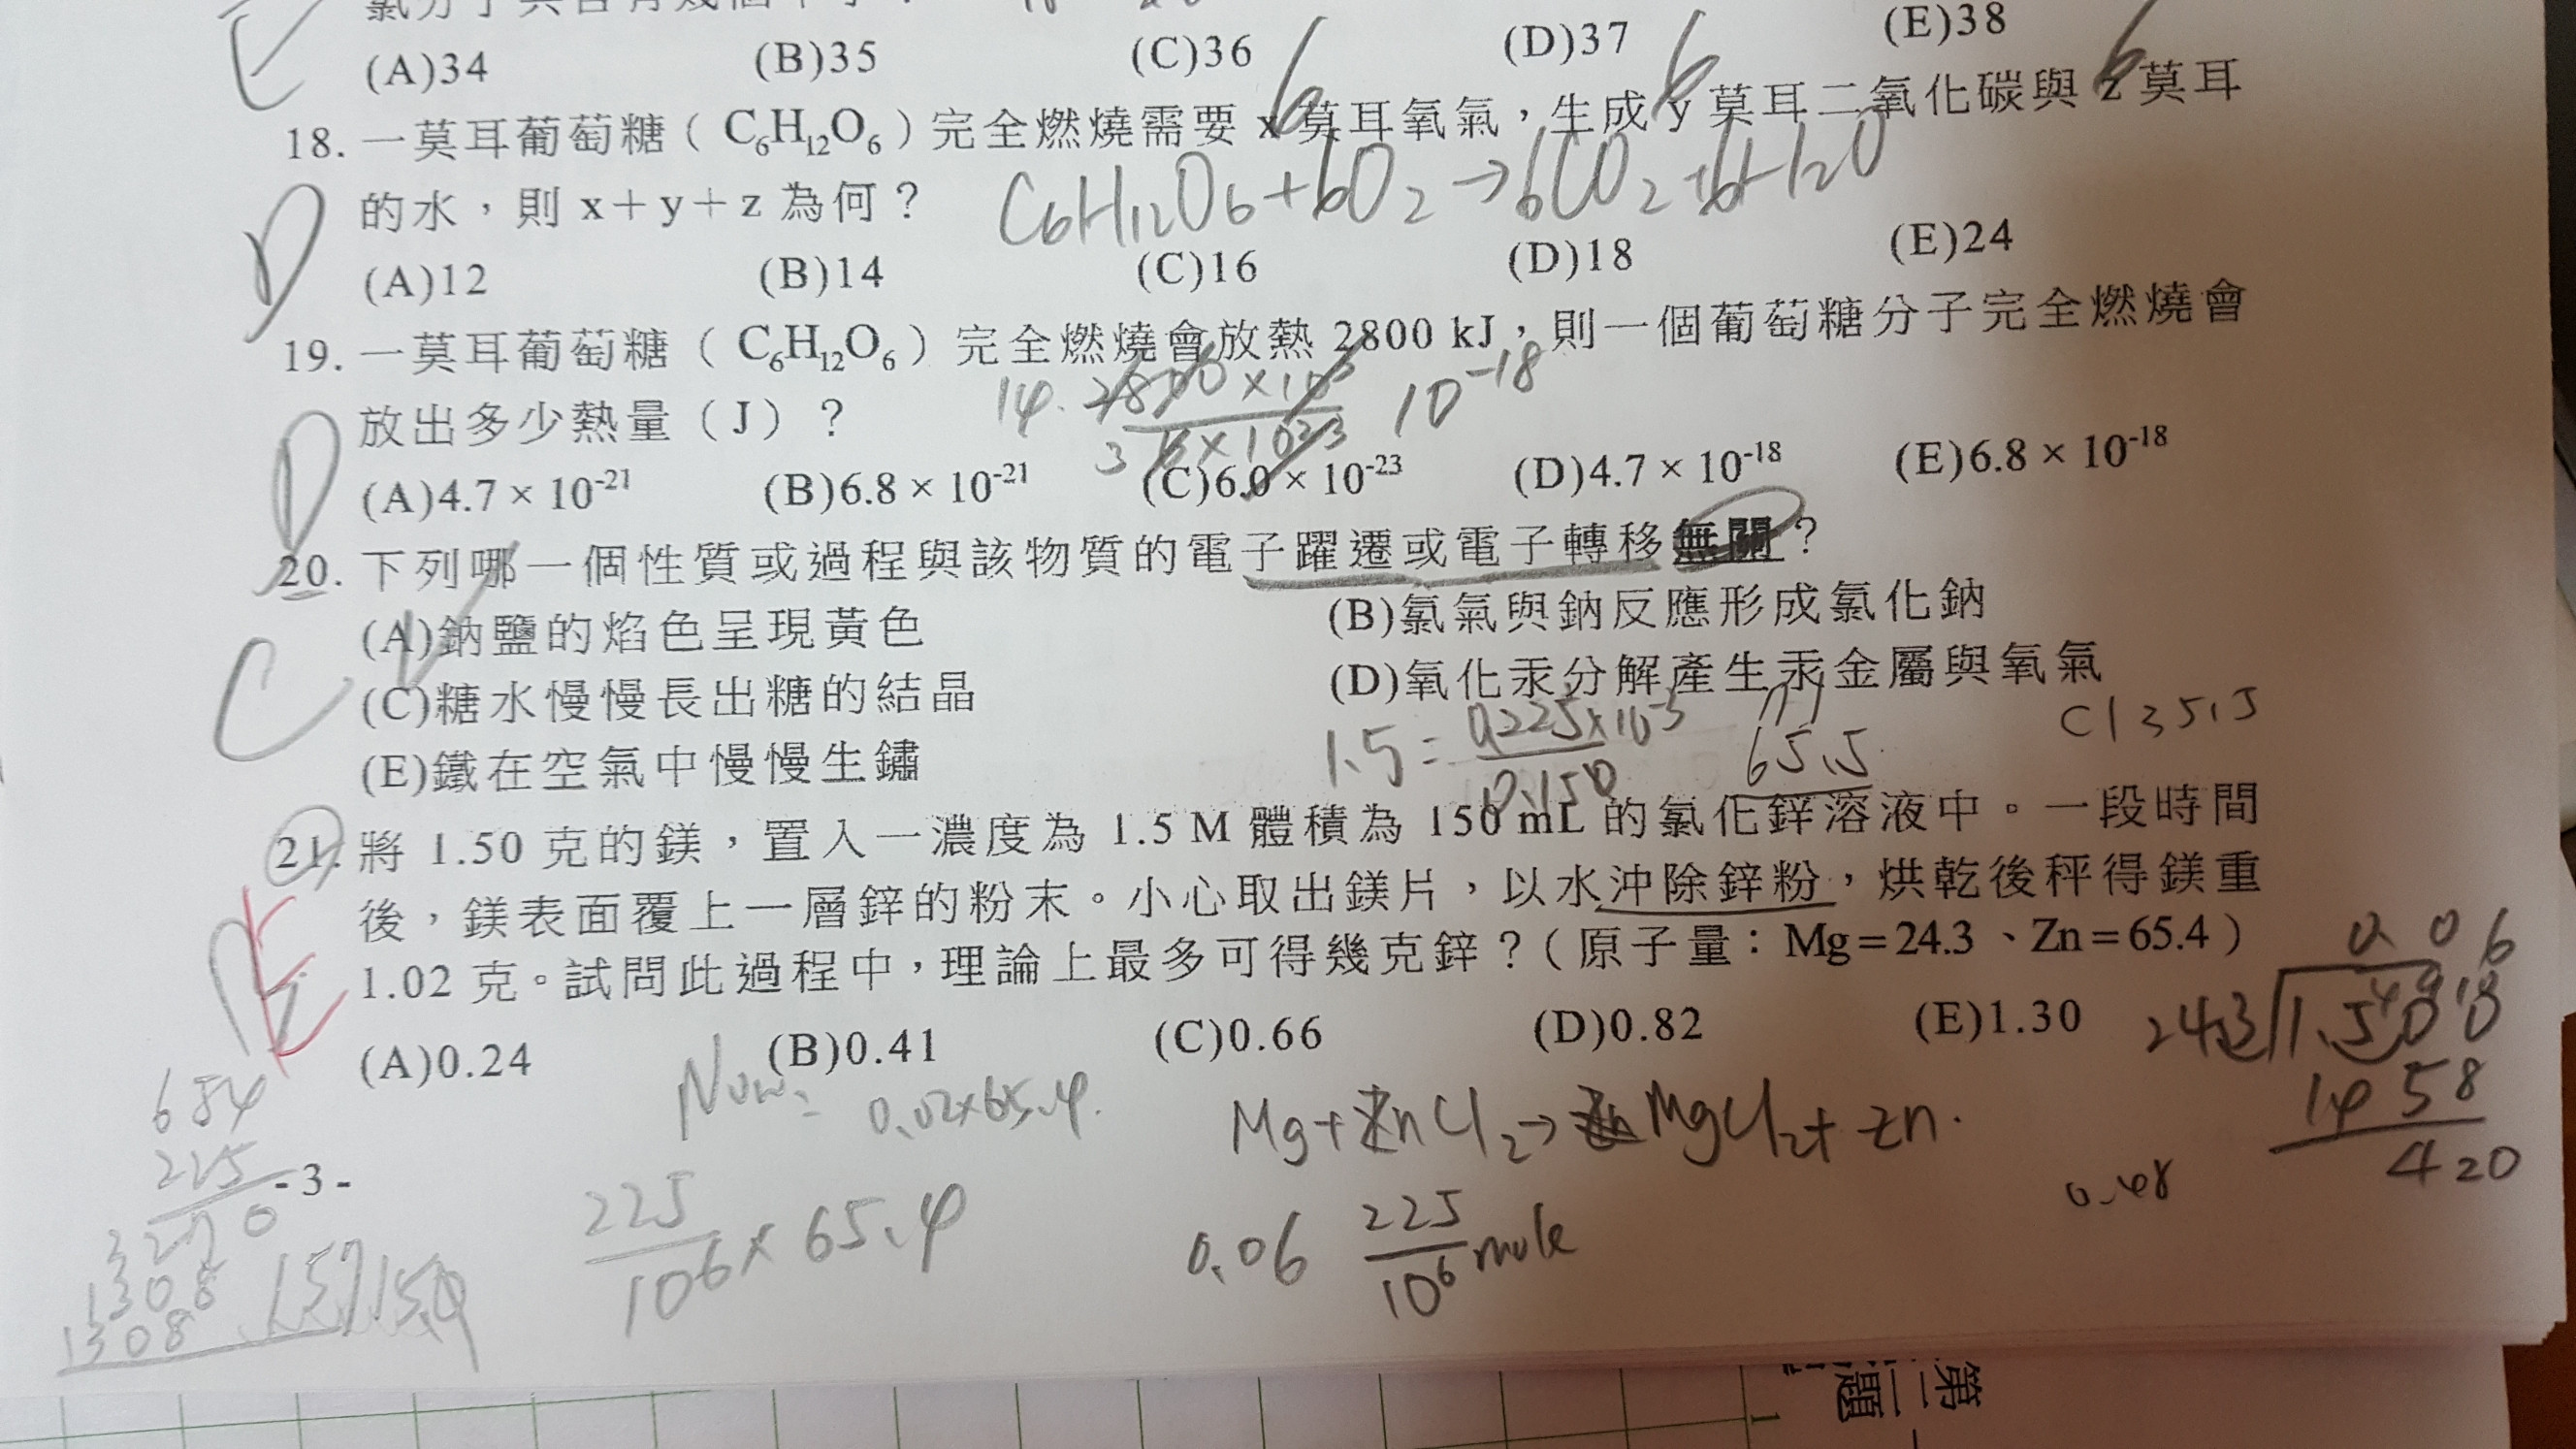 (A)34 (B)35 (C)36 (D)37 (E)38
18. 一莫耳葡萄糖（C₆H₁₂O₆）完全燃燒需要 x 莫耳氧氣，生成 y 莫耳二氧化碳與 z 莫耳
6 6 6
的水，則 x＋y＋z 為何？
C₆H₁₂O₆+6O₂→6CO₂+6H₂O
D
(A)12 (B)14 (C)16 (D)18 (E)24
19. 一莫耳葡萄糖（C₆H₁₂O₆）完全燃燒會放熱 2800 kJ，則一個葡萄糖分子完全燃燒會
放出多少熱量（J）？
14. 2800×10³ 10⁻¹⁸
3 6×10²³
D
(A)4.7 × 10⁻²¹ (B)6.8 × 10⁻²¹ (C)6.0 × 10⁻²³ (D)4.7 × 10⁻¹⁸ (E)6.8 × 10⁻¹⁸
20. 下列哪一個性質或過程與該物質的電子躍遷或電子轉移無關？
(A)鈉鹽的焰色呈現黃色 (B)氯氣與鈉反應形成氯化鈉
C
(C)糖水慢慢長出糖的結晶 (D)氧化汞分解產生汞金屬與氧氣
(E)鐵在空氣中慢慢生鏽
1.5= 0.225×10⁻³ m Cl 35.5
0.150 65.5
21. 將 1.50 克的鎂，置入一濃度為 1.5 M 體積為 150 mL 的氯化鋅溶液中。一段時間
後，鎂表面覆上一層鋅的粉末。小心取出鎂片，以水沖除鋅粉，烘乾後秤得鎂重
1.02 克。試問此過程中，理論上最多可得幾克鋅？（原子量：Mg＝24.3、Zn＝65.4）
E
(A)0.24 (B)0.41 (C)0.66 (D)0.82 (E)1.30
0.02×65.4
Mg+ZnCl₂→MgCl₂+Zn.
0.06
24.3 1.500
1458
420
0.48
654
225
3270
1308
1308
225
10⁶ ×65.4
0.06 225
10⁶ mole
-3-
第二題
1